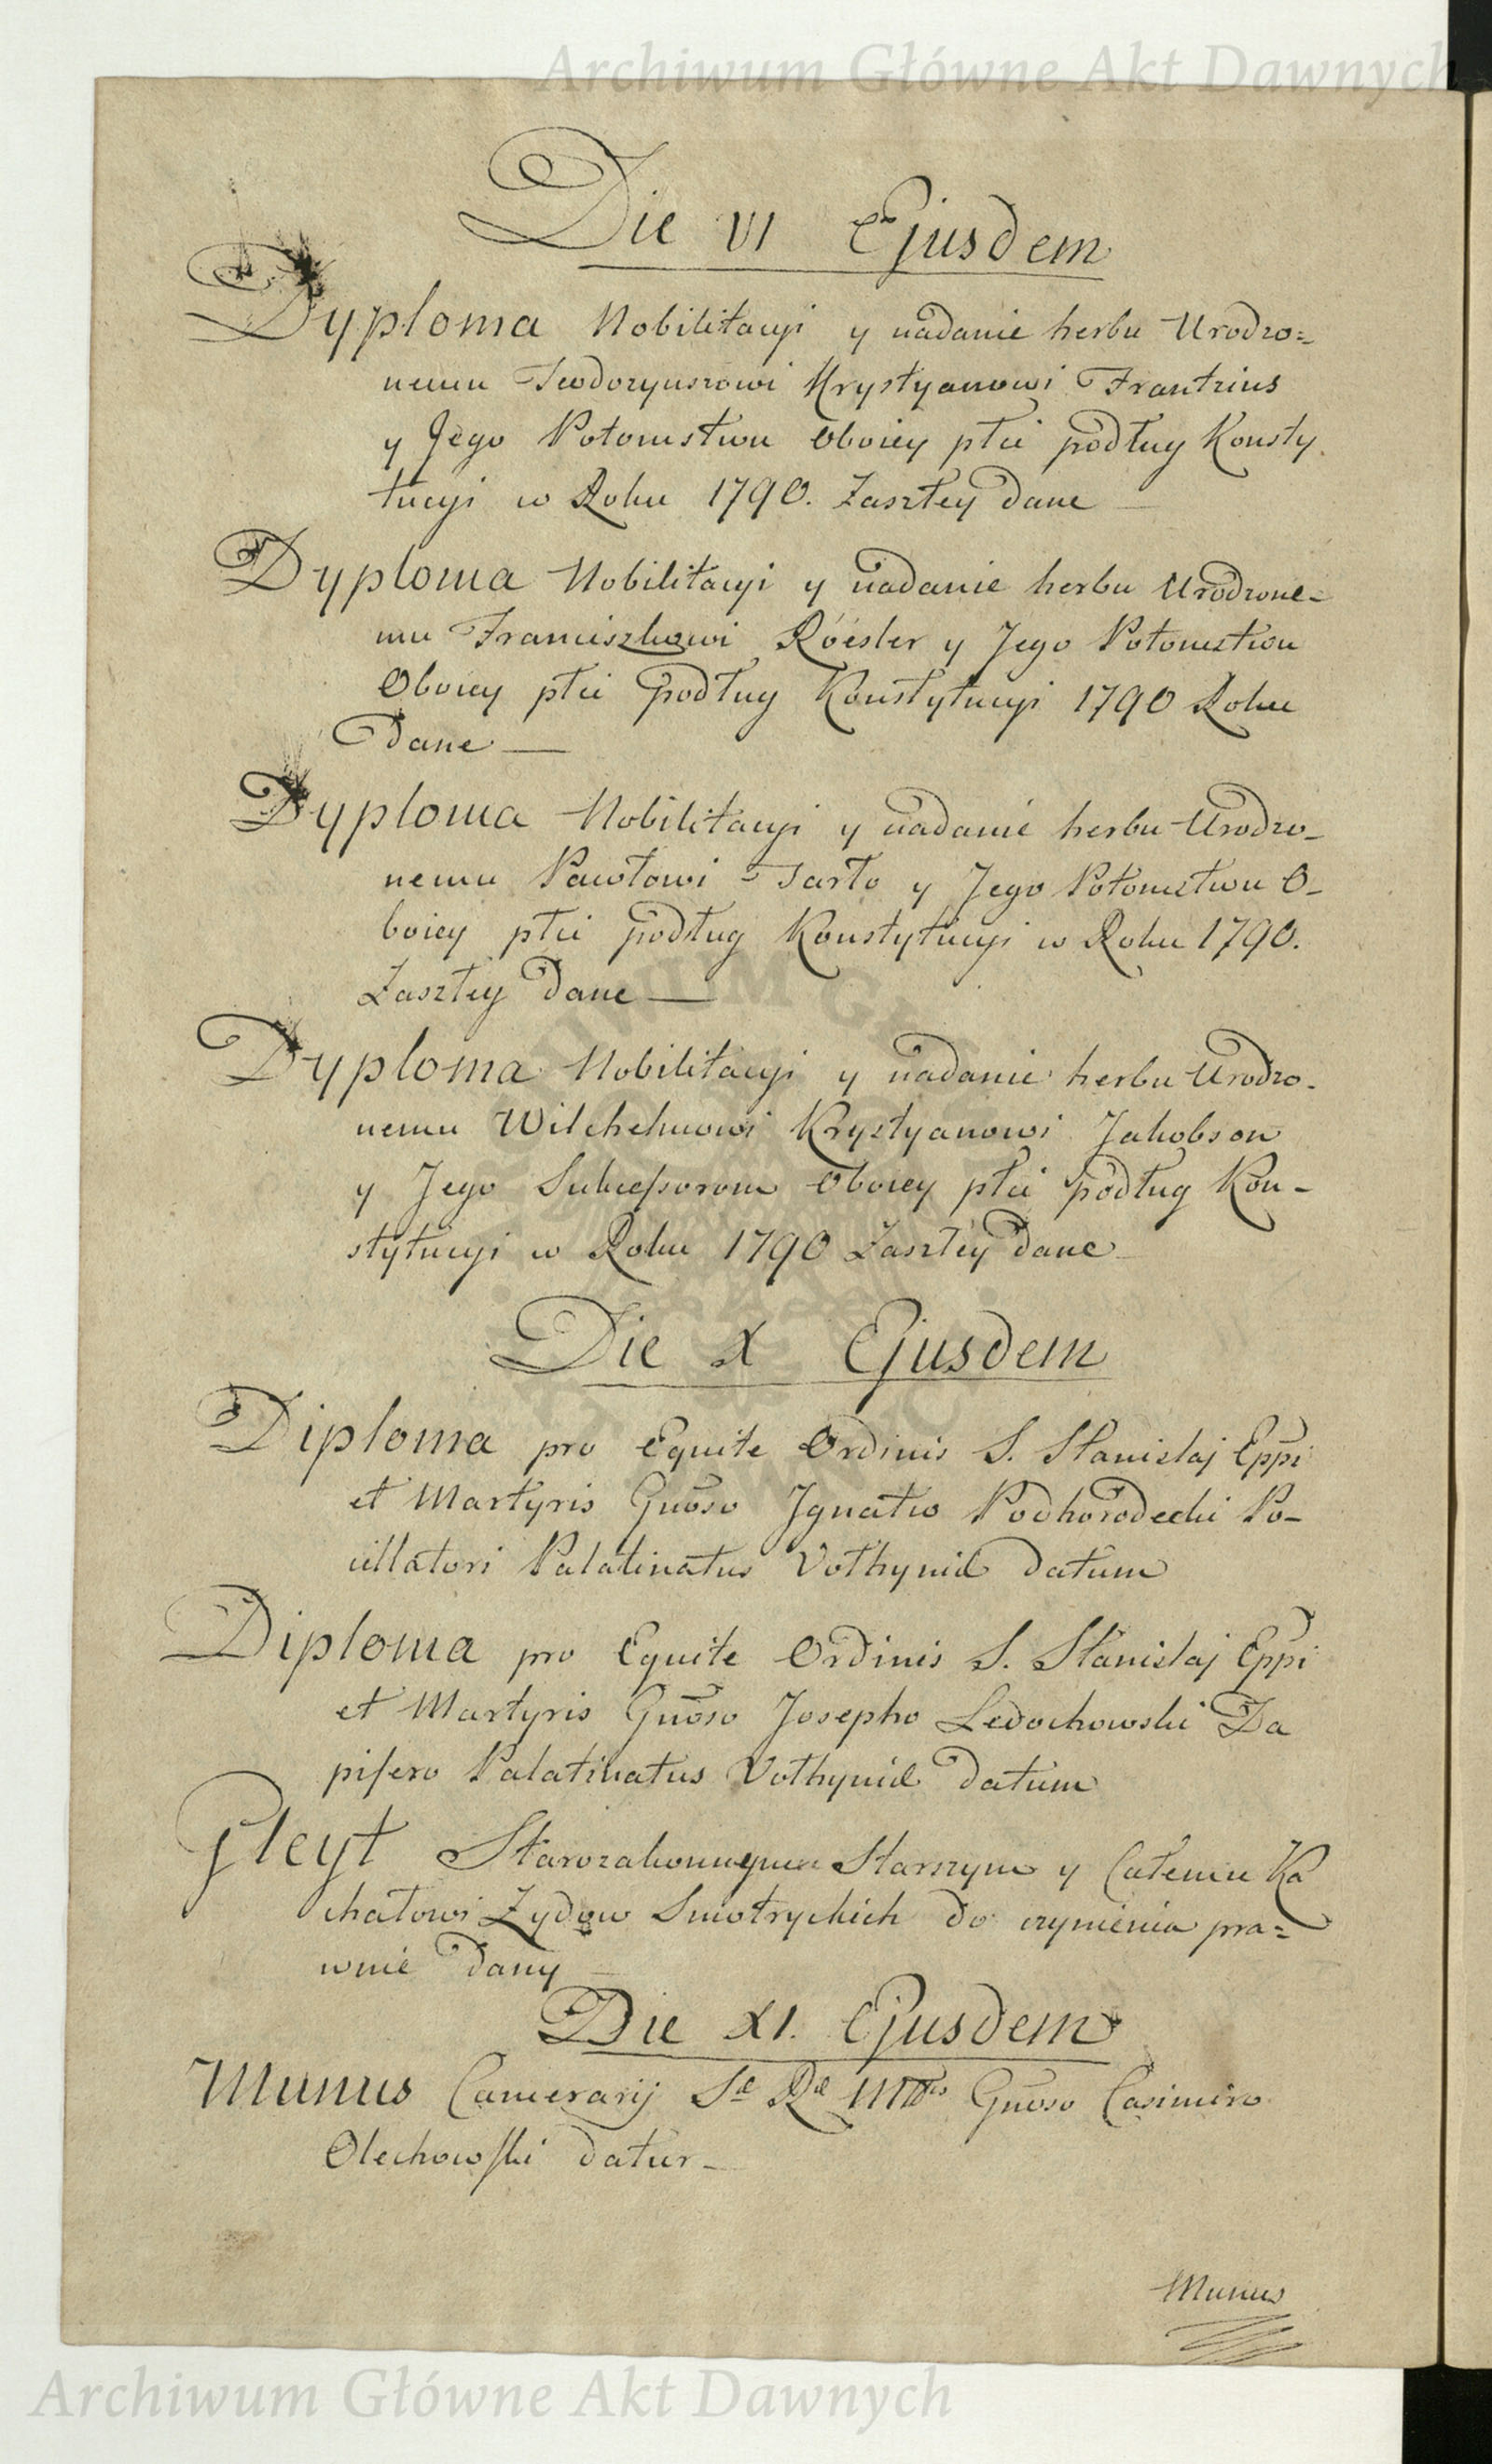 Archiwum Główne Akt Dawnych
Die VI Ejusdem
Dyploma Nobilitacyi y nadanie herbu Urodzo=
nemu Teodoryuszowi Krystyanowi Frantzius
y Jego Potomstwu Oboiey płci podług Konsty
tucyi w Roku 1790. Zaszłey dane —
Dyploma Nobilitacyi y nadanie herbu Urodzone-
mu Franciszkowi Róesler y Jego Potomstwu
Oboiey płci podług Konstytucyi 1790 Roku
dane —
Dyploma Nobilitacyi y nadanie herbu Urodzo-
nemu Pawłowi Sarto y Jego Potomstwu O-
boiey płci podług Konstytucyi w Roku 1790.
Zaszłey dane —
Dyploma Nobilitacyi y nadanie herbu Urodzo-
nemu Wilchelmowi Krystyanowi Jakobson
y Jego Sukcessorom Oboiey płci podług Kon-
stytucyi w Roku 1790 Zaszłey dane —
Die X Ejusdem
Diploma pro Equite Ordinis S. Stanislaj Eppi
et Martyris Gnoso Ignatio Podhorodecki Po-
cillatori Palatinatus Volhyniæ datum
Diploma pro Equite Ordinis S. Stanislaj Eppi
et Martyris Gnoso Josepho Ledochowski Da
pifero Palatinatus Volhyniæ datum
Gleyt Starozakonnymu Starszym y Całemu Ka
chałowi Zydow Smotryckich do czynienia pra=
wnie dany —
Die XI. Ejusdem
Munus Camerarij Sæ Ræ Mttis Gnoso Casimiro
Olechowski datur —
Munus
Archiwum Główne Akt Dawnych